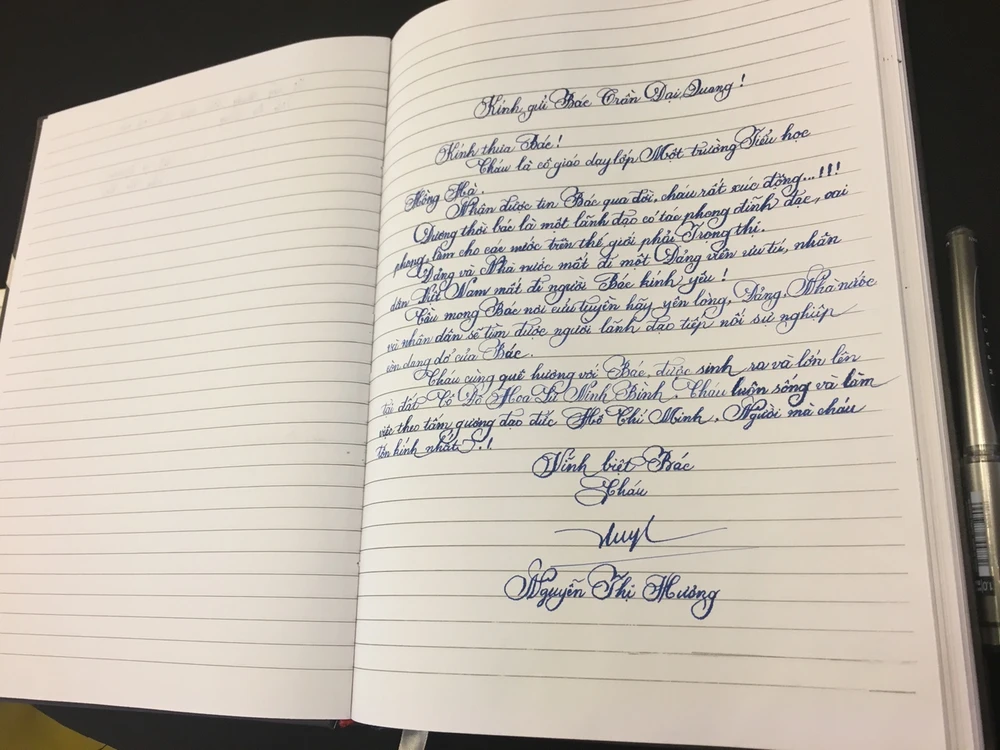 Kính gửi Bác Trần Đại Quang!
Kính thưa Bác!
Cháu là cô giáo dạy lớp Một trường Tiểu học
Hồng Hà.
Nhận được tin Bác qua đời, cháu rất xúc động...!!!
Đương thời bác là một lãnh đạo có tác phong đĩnh đạc, oai
phong, làm cho các nước trên thế giới phải Trọng thị.
Đảng và Nhà nước mất đi một Đảng viên ưu tú, nhân
dân Việt Nam mất đi người Bác kính yêu!
Cầu mong Bác nơi cửu tuyền hãy yên lòng, Đảng, Nhà nước
và nhân dân sẽ tìm được người lãnh đạo tiếp nối sự nghiệp
còn dang dở của Bác.
Cháu cùng quê hương với Bác, được sinh ra và lớn lên
tại đất Cố Đô Hoa Lư Ninh Bình. Cháu luôn sống và làm
việc theo tấm gương đạo đức Hồ Chí Minh, Người mà cháu
tôn kính nhất!
Vĩnh biệt Bác
Cháu
Nguyễn Thị Hương